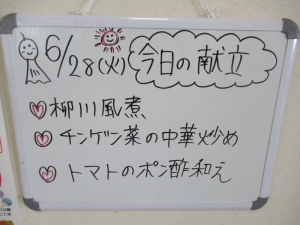 6/28(火) 今日の献立
柳川風煮
チンゲン菜の中華炒め
トマトのポン酢和え